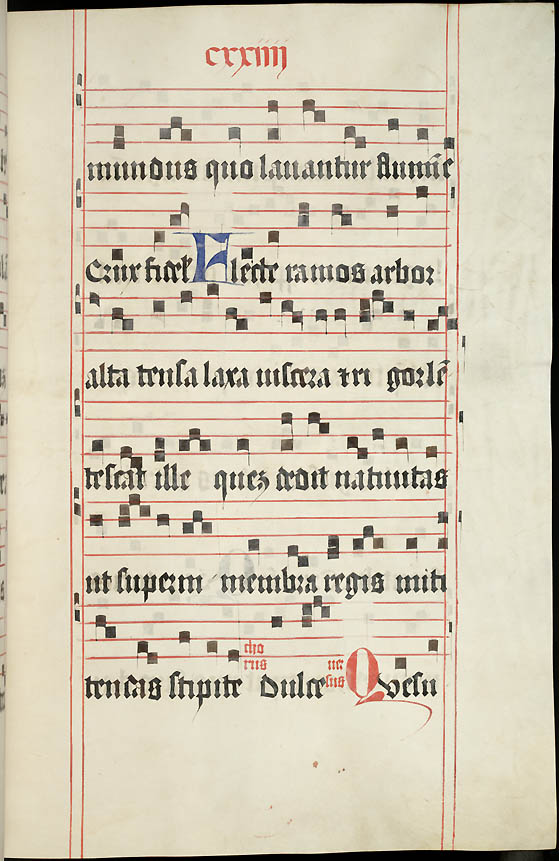 cxxiiij
mundus quo lauantur flumīe
Crux fidel̄ Flecte ramos arbor
alta tensa laxa uiscera et ri gor lē
tescat ille quez dedit natiuitas
ut superni membra regis miti
tendas stipite chorus Dulce uersus Quesu